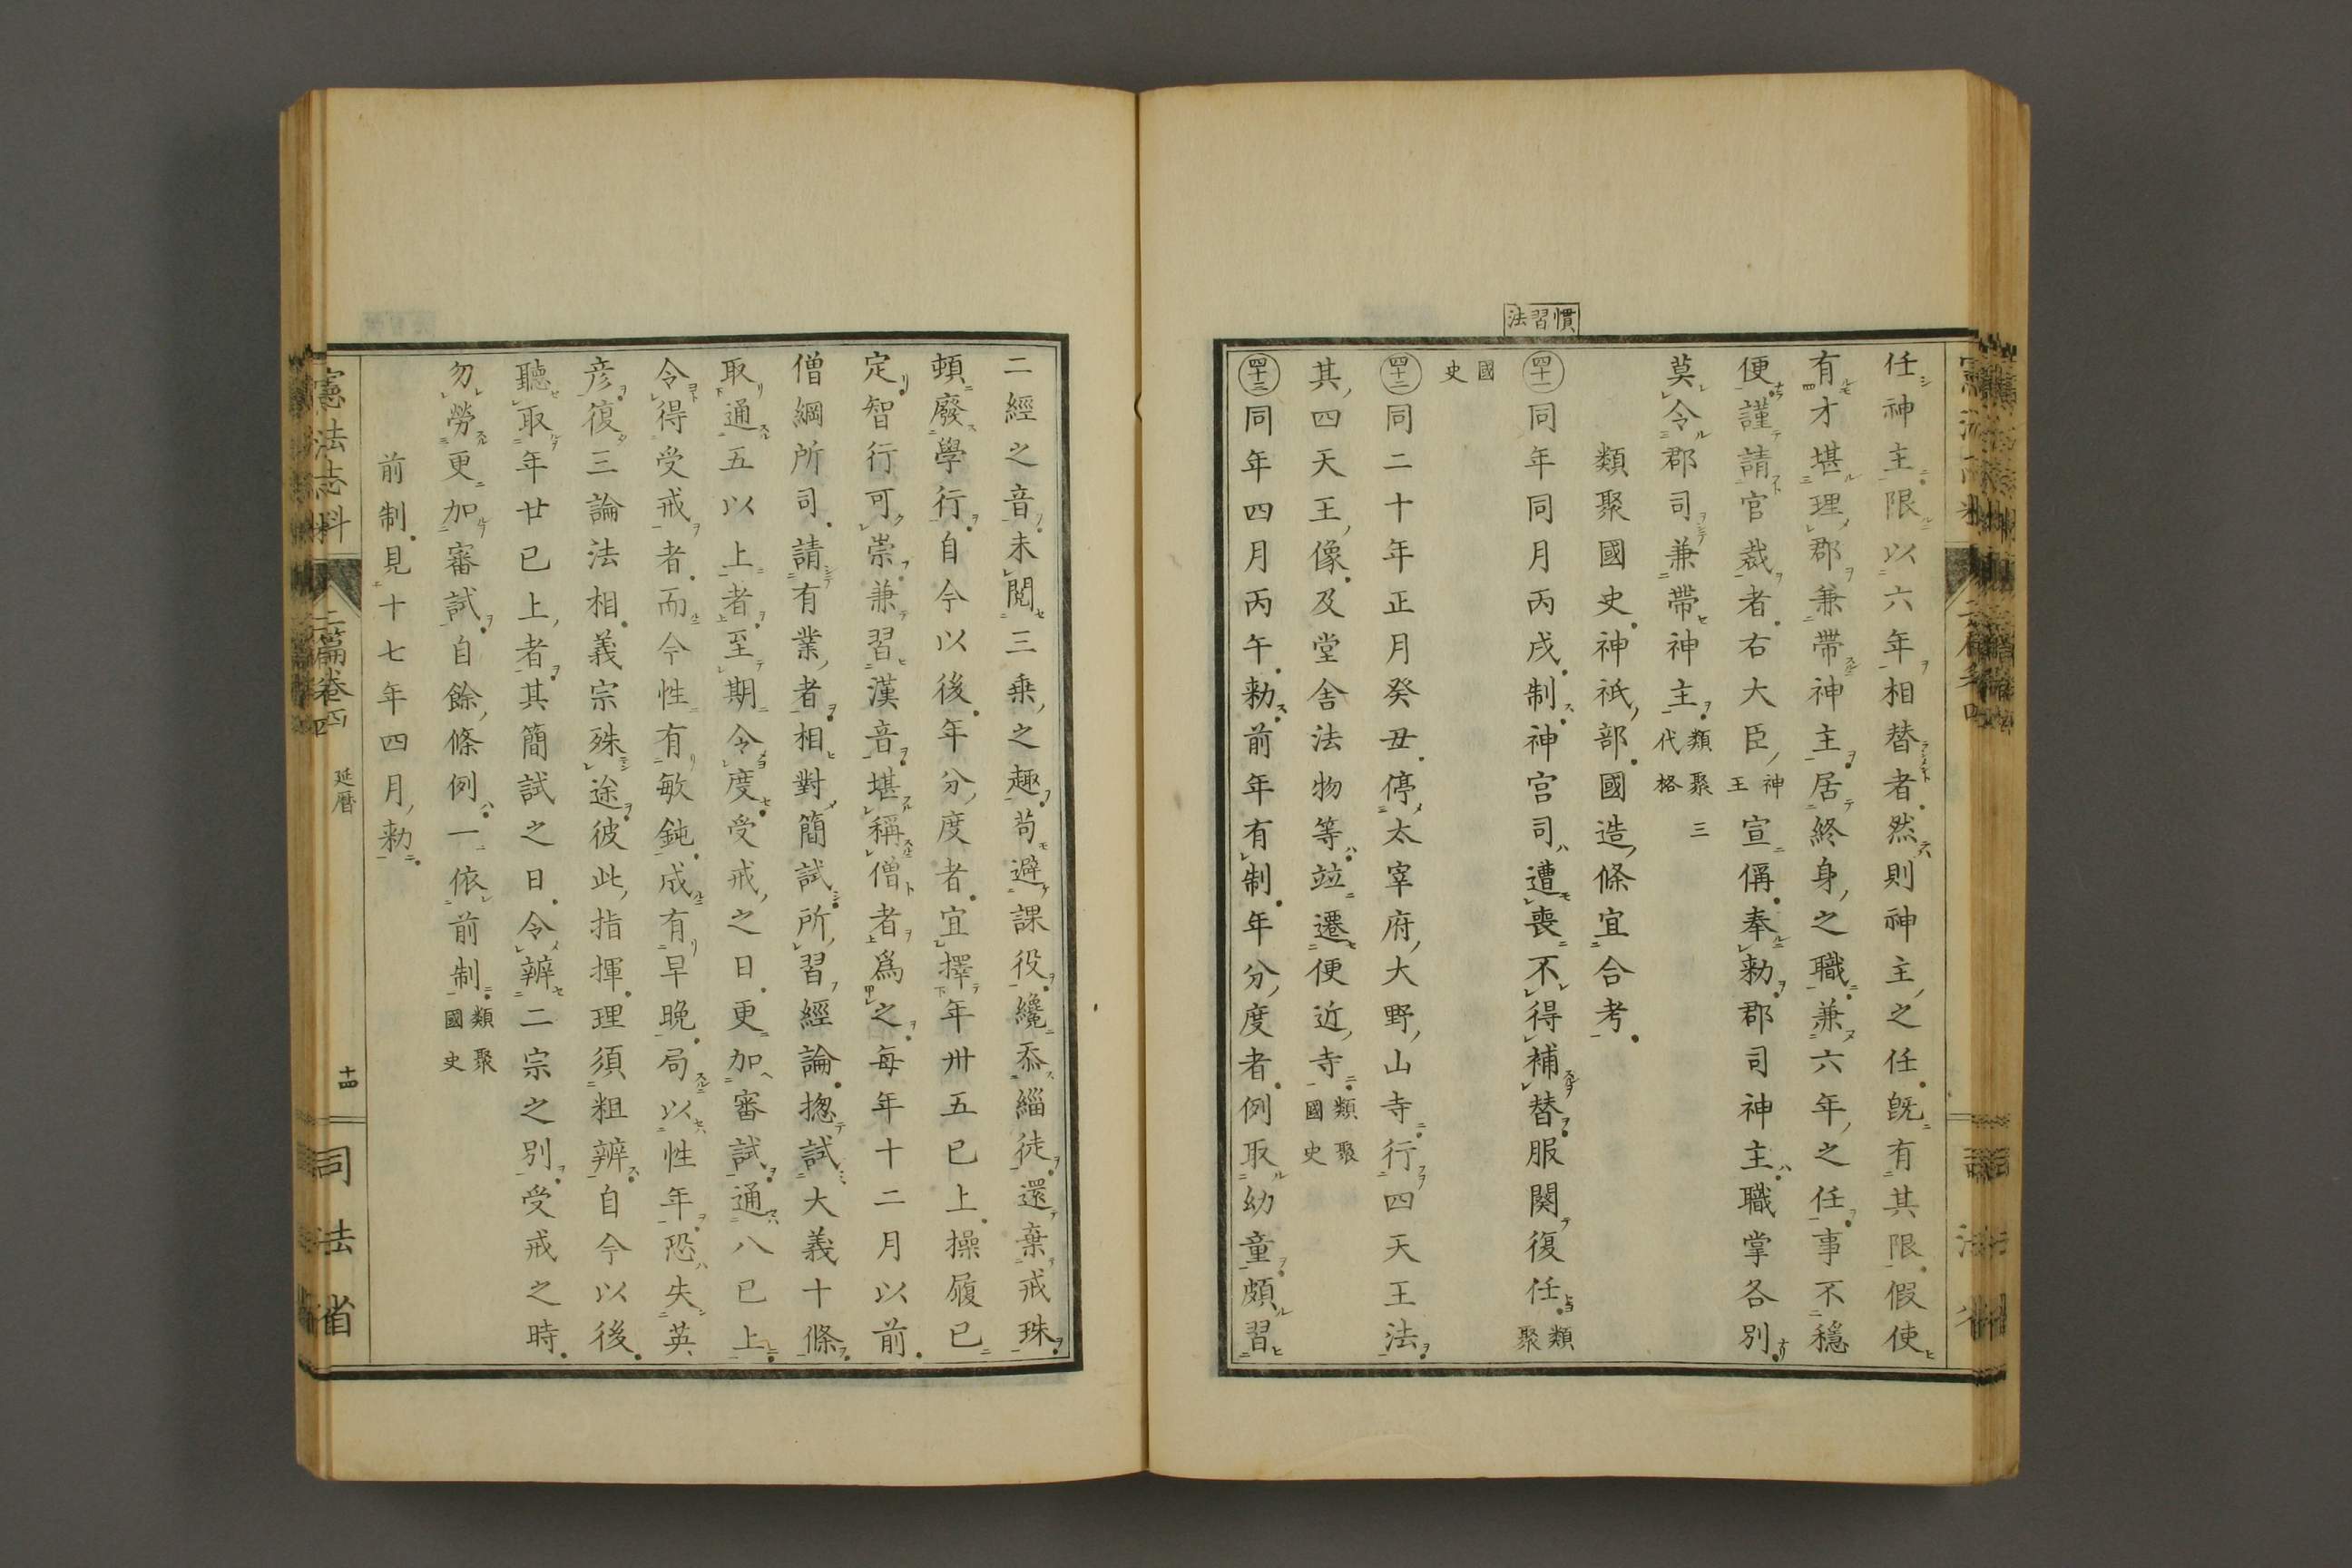 慣習法
任神主限以六年相替者然則神主之任既有其限假使
有才堪理郡兼帶神主居終身之職兼六年之任事不穩
便謹請官裁者右大臣神王宣偁奉勅郡司神主職掌各別
莫令郡司兼帶神主類聚三代格
類聚國史神祇部國造條宜合考
四十一同年同月丙戌制神宮司遭喪不得補替服闋復任類聚
國史
四十二同二十年正月癸丑停太宰府大野山寺行四天王法
其四天王像及堂舍法物等竝遷便近寺類聚國史
四十三同年四月丙午勅前年有制年分度者例取幼童頗習
二經之音未閱三乗之趣苟避課役纔忝緇徒還棄戒珠
頓廢學行自今以後年分度者宜擇年卅五已上操履已
定智行可崇兼習漢音堪稱僧者爲之每年十二月以前
僧綱所司請有業者相對簡試所習經論揔試大義十條
取通五以上者至期令度受戒之日更加審試通八已上
令得受戒者而今性有敏鈍成有早晚局以性年恐失英
彦復三論法相義宗殊途彼此指揮理須粗辨自今以後
聽取年廿已上者其簡試之日令辨二宗之別受戒之時
勿勞更加審試自餘條例一依前制類聚國史
前制見十七年四月勅
憲法志料
二篇卷四
延曆
十四
司法省